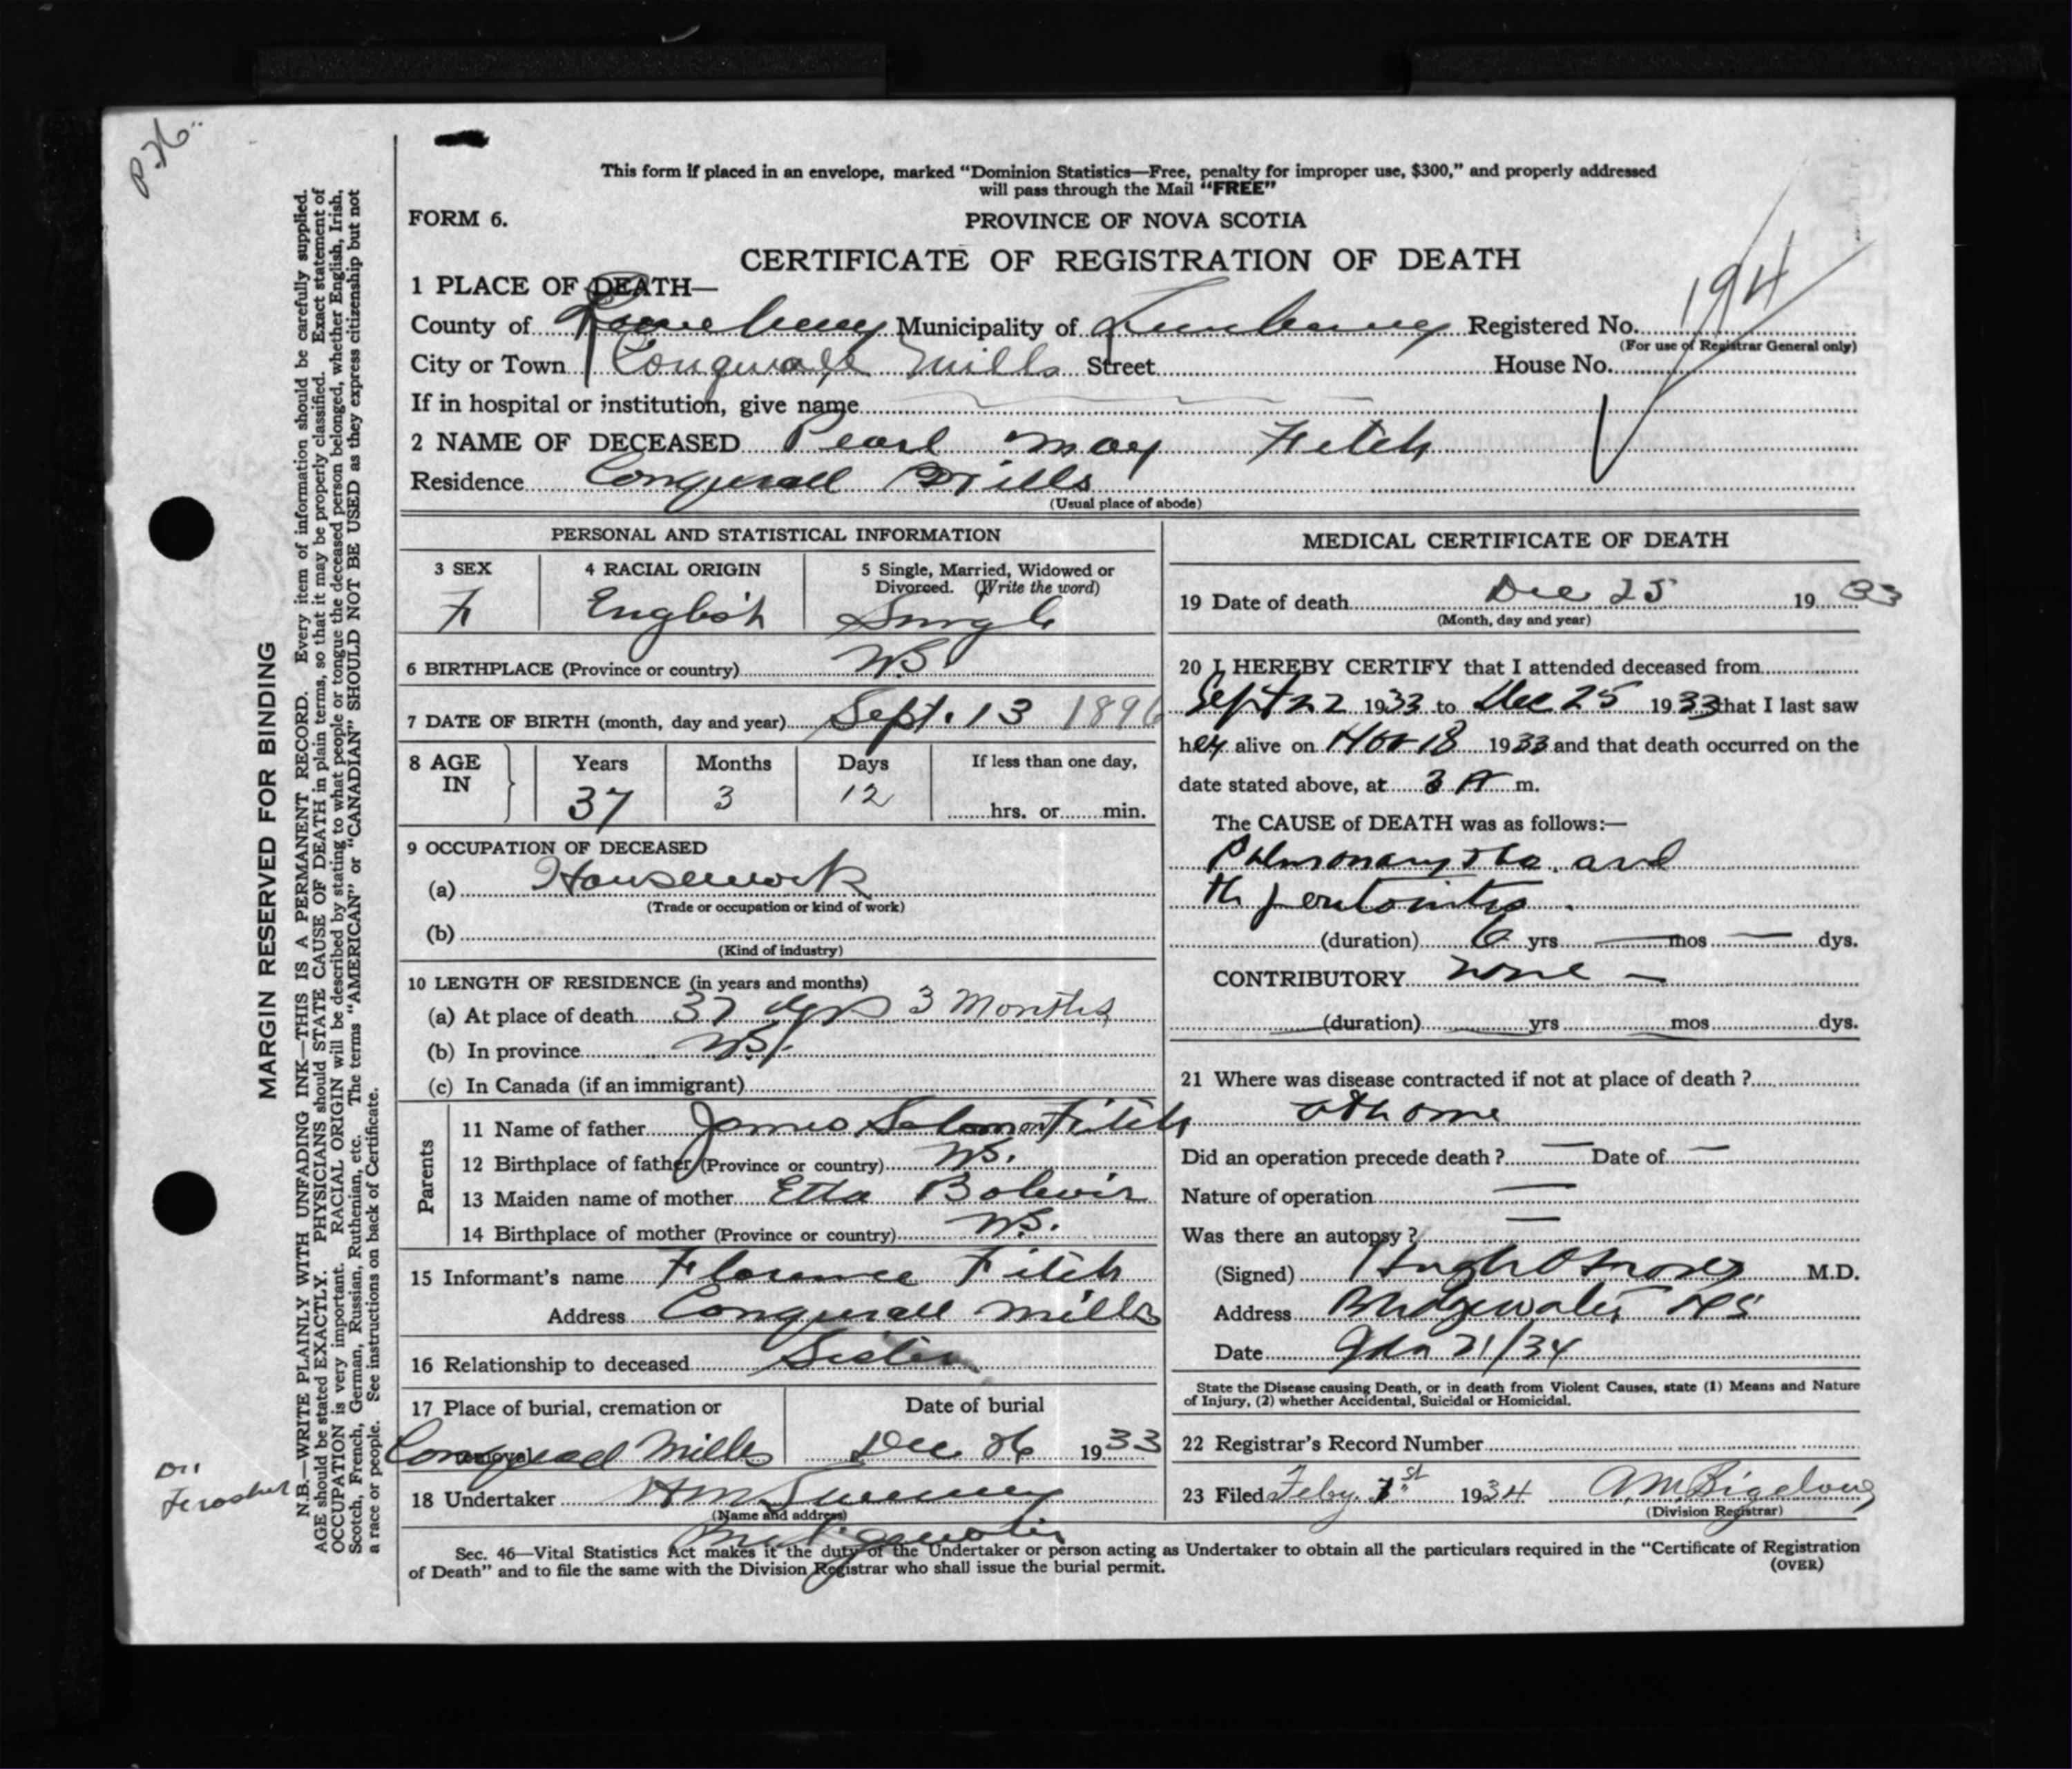 P.H.
This form if placed in an envelope, marked "Dominion Statistics—Free, penalty for improper use, $300," and properly addressed
will pass through the Mail "FREE"
FORM 6.
PROVINCE OF NOVA SCOTIA
CERTIFICATE OF REGISTRATION OF DEATH
1 PLACE OF DEATH—
County of Lunenburg Municipality of Lunenburg Registered No. 194
(For use of Registrar General only)
City or Town Conquerall Mills Street House No.
If in hospital or institution, give name
2 NAME OF DECEASED Pearl May Fitch
Residence Conquerall Mills
(Usual place of abode)
PERSONAL AND STATISTICAL INFORMATION
3 SEX 4 RACIAL ORIGIN 5 Single, Married, Widowed or
Divorced. (Write the word)
F English Single
6 BIRTHPLACE (Province or country) N.S.
7 DATE OF BIRTH (month, day and year) Sept. 13 1896
8 AGE IN Years Months Days If less than one day,
37 3 12 hrs. or min.
9 OCCUPATION OF DECEASED
(a) Housework
(Trade or occupation or kind of work)
(b)
(Kind of industry)
10 LENGTH OF RESIDENCE (in years and months)
(a) At place of death 37 yrs 3 Months
(b) In province N.S.
(c) In Canada (if an immigrant)
Parents
11 Name of father James Solomon Fitch
12 Birthplace of father (Province or country) N.S.
13 Maiden name of mother Etta
14 Birthplace of mother (Province or country) N.S.
15 Informant's name Florence Fitch
Address Conquerall Mills
16 Relationship to deceased Sister
17 Place of burial, cremation or Date of burial
removal Conquerall Mills Dec 26 1933
18 Undertaker H M Sweeney
(Name and address)
Bridgewater
MEDICAL CERTIFICATE OF DEATH
19 Date of death Dec 25 1933
(Month, day and year)
20 I HEREBY CERTIFY that I attended deceased from
Sept 22 1933 to Dec 25 1933 that I last saw
her alive on Nov 18 1933 and that death occurred on the
date stated above, at 3 A m.
The CAUSE of DEATH was as follows:—
Pulmonary tba. and
tb peritonitis.
(duration) 6 yrs — mos — dys.
CONTRIBUTORY none —
(duration) yrs mos dys.
21 Where was disease contracted if not at place of death ?
at home
Did an operation precede death ? — Date of —
Nature of operation —
Was there an autopsy ? —
(Signed) Hugh M.D.
Address Bridgewater NS
Date Jan 21/34
State the Disease causing Death, or in death from Violent Causes, state (1) Means and Nature
of Injury, (2) whether Accidental, Suicidal or Homicidal.
22 Registrar's Record Number
23 Filed Feby. 1st 1934 A.M. Bigelow
(Division Registrar)
Sec. 46—Vital Statistics Act makes it the duty of the Undertaker or person acting as Undertaker to obtain all the particulars required in the "Certificate of Registration
of Death" and to file the same with the Division Registrar who shall issue the burial permit. (OVER)
MARGIN RESERVED FOR BINDING
N.B.—WRITE PLAINLY WITH UNFADING INK—THIS IS A PERMANENT RECORD. Every item of information should be carefully supplied.
AGE should be stated EXACTLY. PHYSICIANS should STATE CAUSE OF DEATH in plain terms, so that it may be properly classified. Exact statement of
OCCUPATION is very important. RACIAL ORIGIN will be described by stating to what people or tongue the deceased person belonged, whether English, Irish,
Scotch, French, German, Russian, Ruthenian, etc. The terms "AMERICAN" or "CANADIAN" SHOULD NOT BE USED as they express citizenship but not
a race or people. See instructions on back of Certificate.